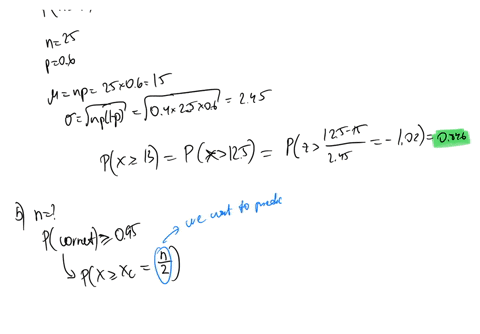 n=25
p=0.6
μ = np = 25×0.6 = 15
σ = √np(1-p) = √0.4×25×0.6 = 2.45
P(X ≥ 13) = P(X > 12.5) = P(z > (12.5-15)/2.45 = -1.02) = 0.846
b) n=?
P(correct) ≥ 0.95
we want to
P(X ≥ Xc = n/2)